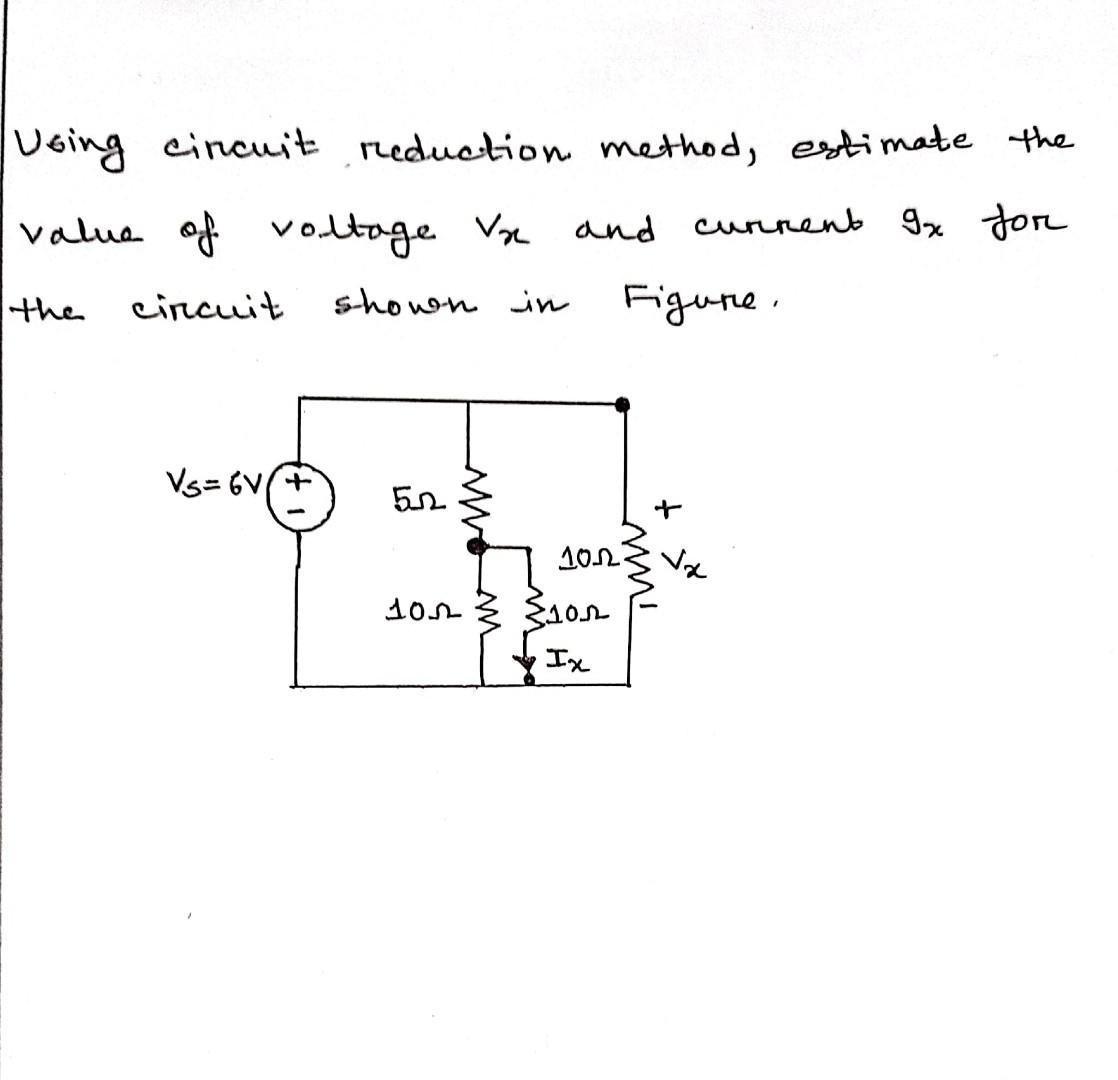 Using circuit reduction method, estimate the
value of voltage Vx and current Ix for
the circuit shown in Figure.
Vs=6V
+
-
5Ω
+
10Ω
Vx
-
10Ω
10Ω
Ix